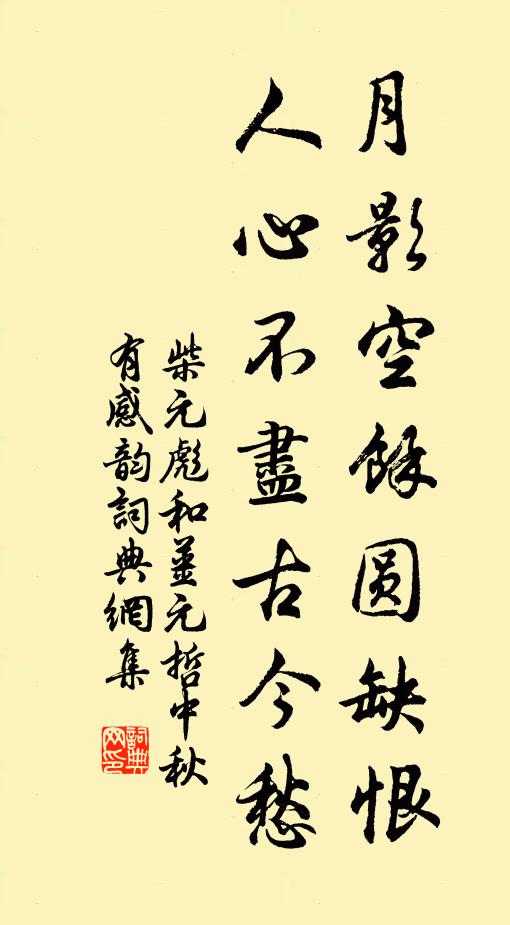 月影空餘圆缺恨
人心不盡古今愁
柴元彪和薑元哲中秋
有感韵詞典網集
詞典
网印